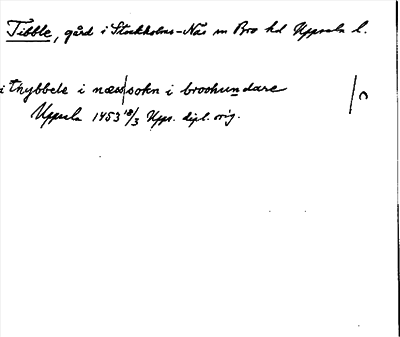 Tibble, gård i Stockholms-Näs sn Bro hd Uppsala l.
i thybbele i næsssokn i broohundare
Uppsala 1453 18/3 Upps. dipl. orig.